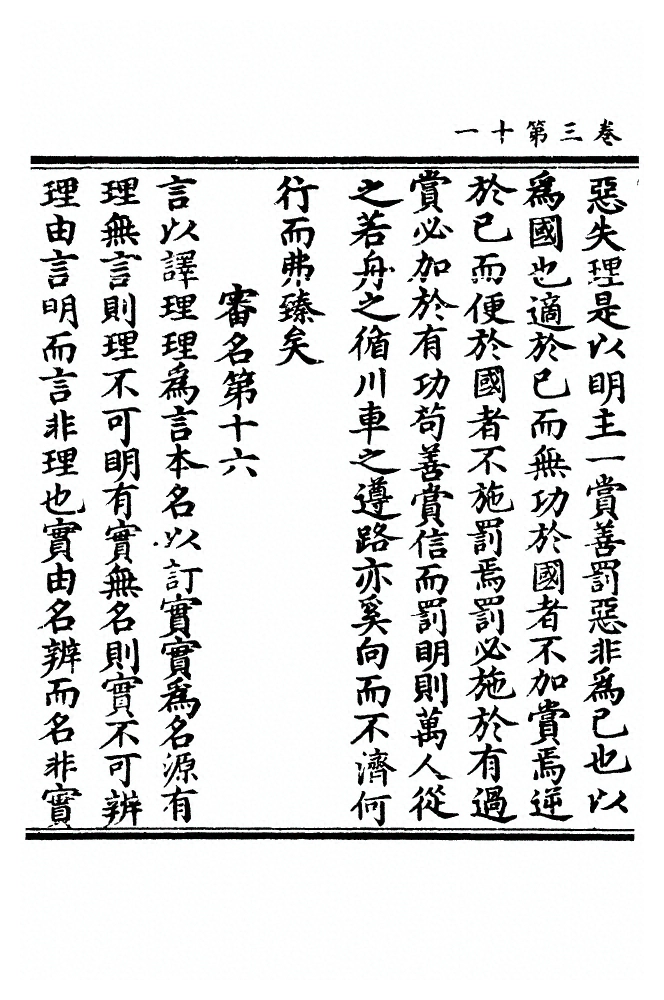 卷三第十一
惡失理是以明主一賞善罰惡非爲己也以
爲國也適於己而無功於國者不加賞焉逆
於己而便於國者不施罰焉罰必施於有過
賞必加於有功苟善賞信而罰明則萬人從
之若舟之循川車之遵路亦奚向而不濟何
行而弗臻矣
審名第十六
言以譯理理爲言本名以訂實實爲名源有
理無言則理不可明有實無名則實不可辨
理由言明而言非理也實由名辨而名非實